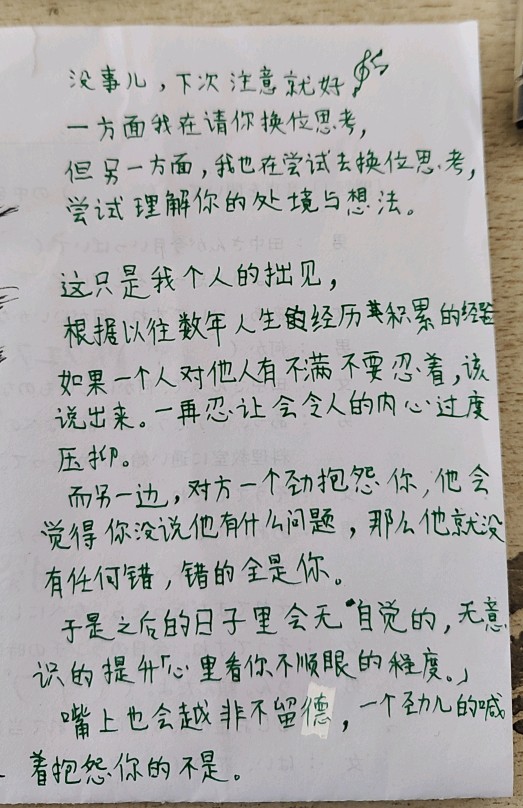 没事儿，下次注意就好
一方面我在请你换位思考，
但另一方面，我也在尝试去换位思考，
尝试理解你的处境与想法。
这只是我个人的拙见，
根据以往数年人生的经历其积累的经验
如果一个人对他人有不满不要忍着，该
说出来。一再忍让会令人的内心过度
压抑。
而另一边，对方一个劲抱怨你，他会
觉得你没说他有什么问题，那么他就没
有任何错，错的全是你。
于是之后的日子里会无自觉的，无意
识的提升「心里看你不顺眼的程度。」
嘴上也会越非不留德，一个劲儿的喊
着抱怨你的不是。